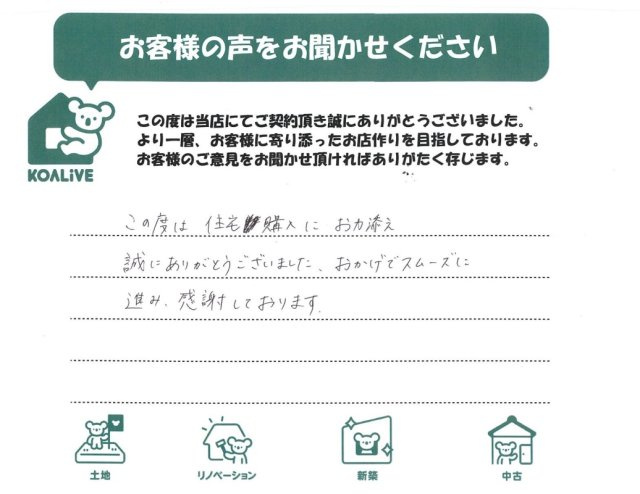 お客様の声をお聞かせください
この度は当店にてご契約頂き誠にありがとうございました。
より一層、お客様に寄り添ったお店作りを目指しております。
お客様のご意見をお聞かせ頂ければありがたく存じます。
KOALiVE
この度は 住宅購入に お力添え
誠にありがとうございました、おかげでスムーズに
進み、感謝しております。
土地
リノベーション
新築
中古